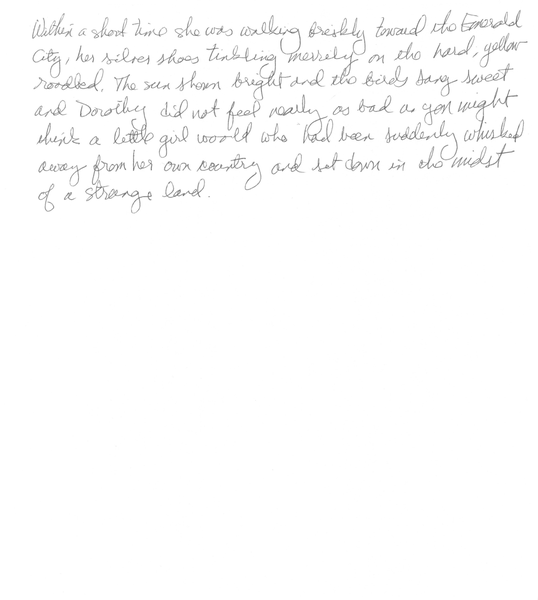 Within a short time she was walking briskly toward the Emerald
City, her silver shoes tinkling merrily on the hard, yellow
roadbed. The sun shown bright and the birds sang sweet
and Dorothy did not feel nearly as bad as you might
think a little girl would who had been suddenly whisked
away from her own country and set down in the midst
of a strange land.